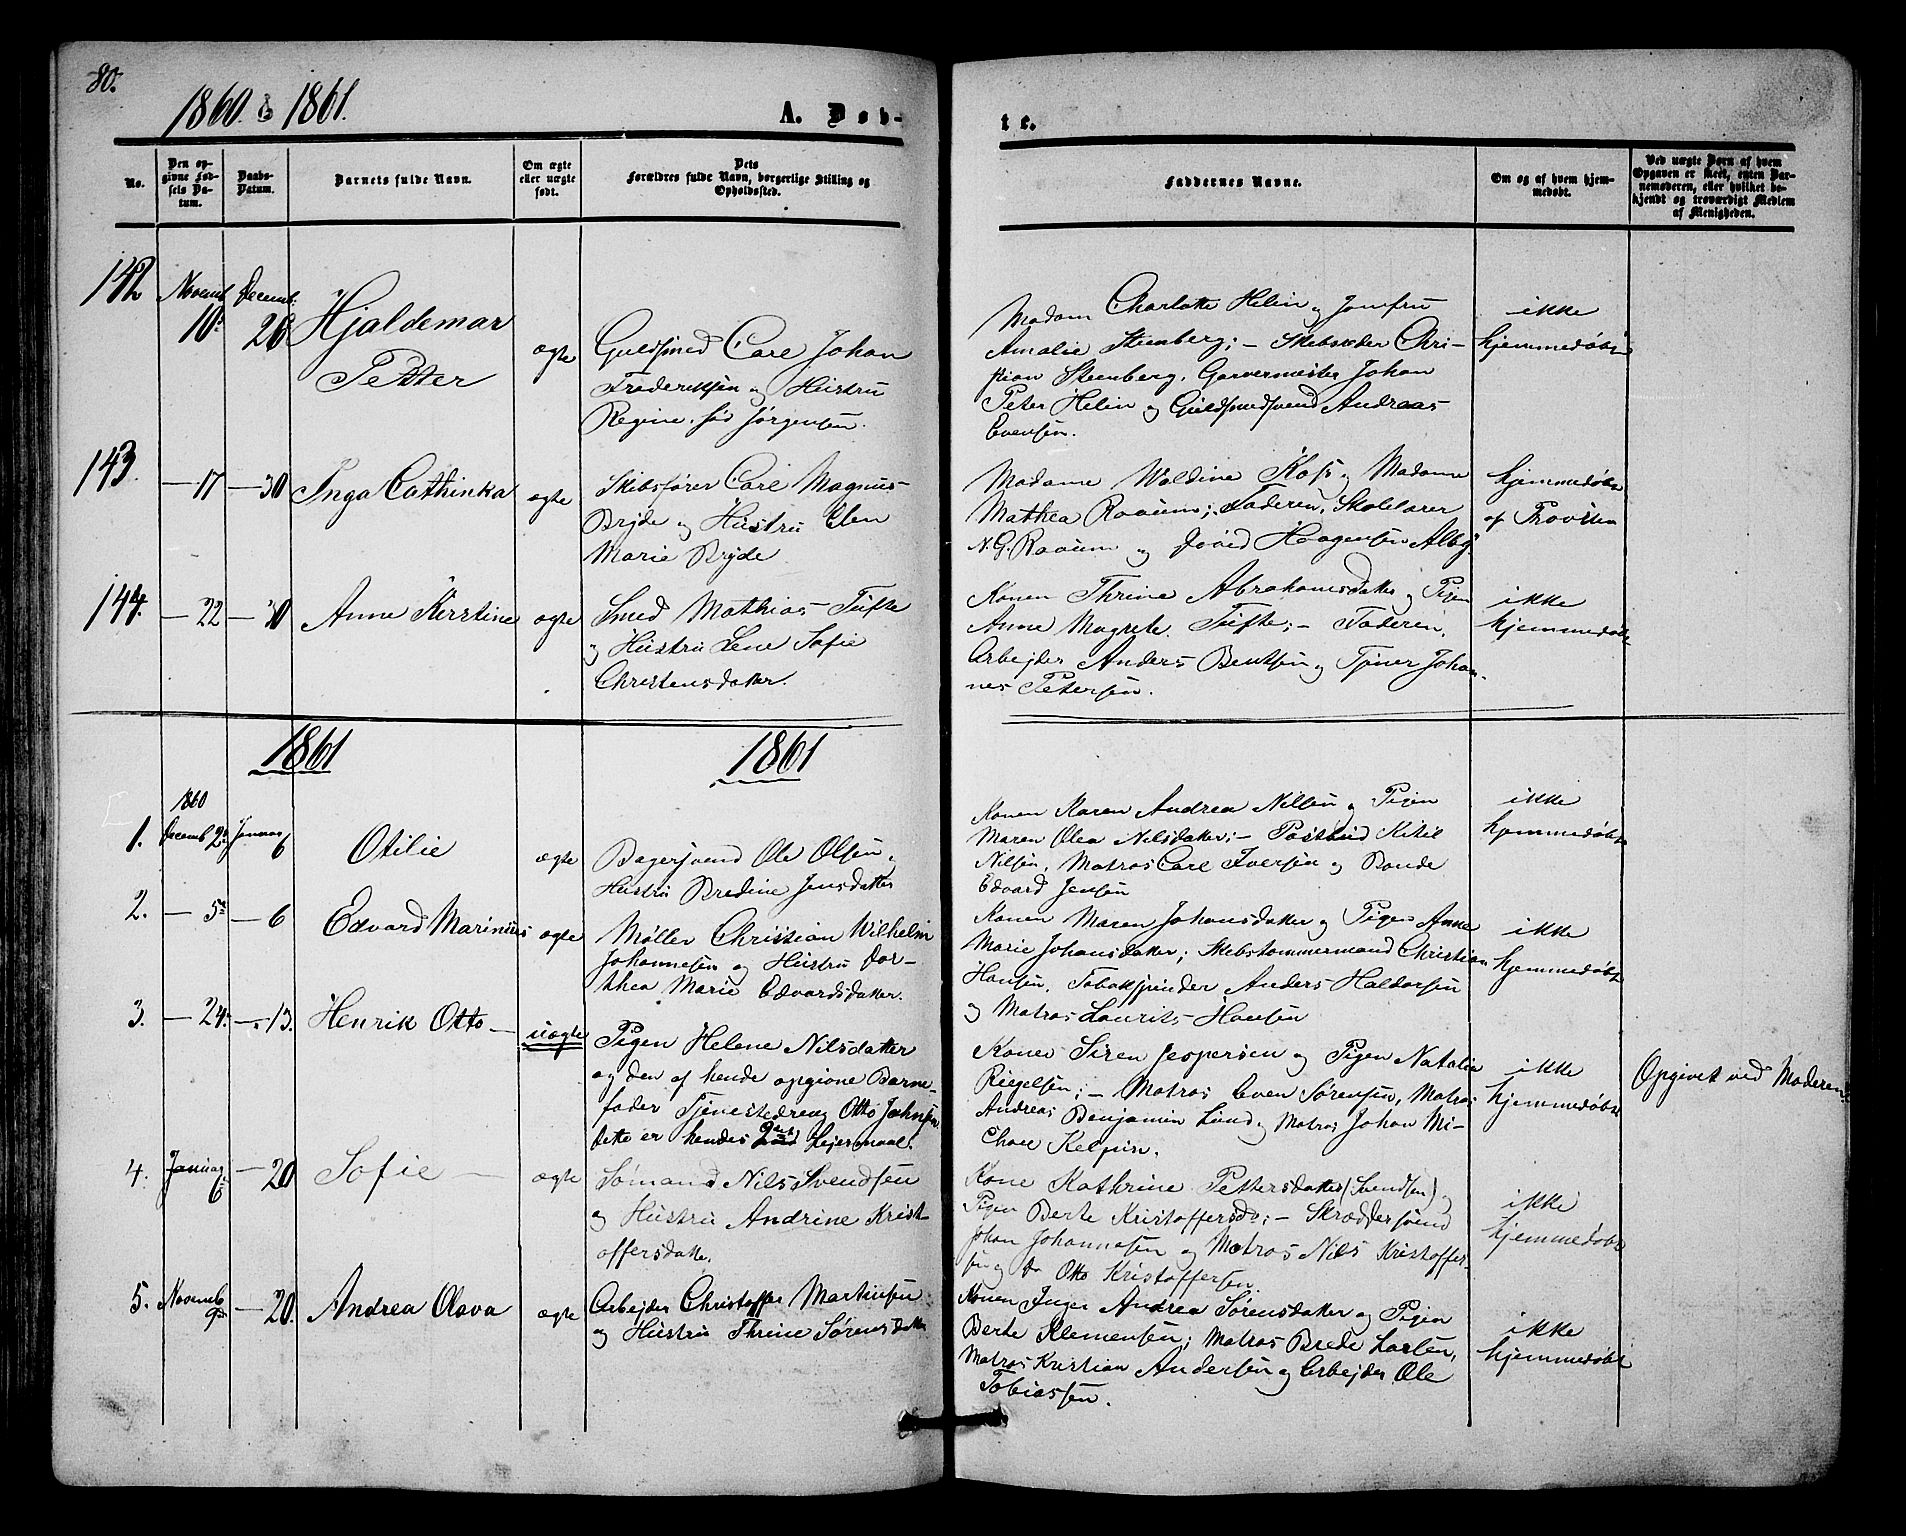 80.
1860. & 1861.
A. Døb-
te.
No.
Den op-
givne Fød-
sels Da-
tum.
Daabs-
Datum.
Barnets fulde Navn.
Om ægte
eller uægte
født.
Dets
Forældres fulde Navn, borgerlige Stilling og
Opholdssted.
Faddernes Navne.
Om og af hvem hjem-
medøbt.
Ved uægte Børn af hvem
Opgaven er skeet, enten Bar-
nemoderen, eller hvilket be-
kjendt og troværdigt Medlem
af Menigheden.
142
Novemb
10.
Decemb.
26
Hjaldemar
Petter
ægte
Guldsmed Carl Johan
Frederiksen og Hustru
Regine, fød Jørgensen.
Madam Charlotte Helin og Jomfru
Amalie Steenberg; - Skibsreder Chri-
stian Steenberg, Garvermester Johan
Peter Helin og Guldsmedsvend Andreas
Evensen.
ikke
hjemmedøbt
143.
— 17
— 30
Inga Cathinka
ægte
Skibsfører Carl Magnus
Bryde og Hustru Elen
Marie Bryde
Madame Waldine Koss og Madame
Mathea Raaum; Faderen, Skolelærer
N. G. Raaum og Jørgensen Alby
hjemmedøbt
af Provsten
144.
— 22
— 30
Anne Kirstine
ægte
Smed Mathias Tufte
og Hustru Lene Sofie
Christensdatter.
Konen Thrine Abrahamsdatter og Pigen
Anne Magrete Tufte; - Faderen,
Arbejder Anders Bentsen og Tjener Johan-
nes Petersen.
ikke
hjemmedøbt
1861
1861
1860
1.
Decemb 2den
Januar 6
Otilie
ægte
Bagersvend Ole Olsen og
Hustru Bredine Jensdatter
Konen Karen Andrea Nilsen og Pigen
Maren Olea Nilsdatter; - Postbud Kitil
Nilsen, Matros Carl Iversen og Bonde
Edvard Jensen
ikke
hjemmedøbt
2.
— 5te
— 6
Edvard Marinius
ægte
Møller Christian Wilhelm
Johannesen og Hustru Dor-
thea Marie Edvardsdatter.
Konen Maren Johansdatter og Pigen Anne
Marie Johansdatter; Skibstømmermand Christian
Hansen, Tobakspinder Anders Haldorsen
og Matros Laurits Hansen
ikke
hjemmedøbt
3.
— 24.
— 13.
Henrik Otto —
uægte
Pigen Helene Nilsdatter
og den af hende opgivne Barne-
fader Tjenestedreng Otto Johnsen
dette er hendes 2det Lejersmaal.
Konen Siren Jespersen og Pigen Natalie
Riegelsen; - Matros Even Sørensen, Matros
Andreas Benjamin Lund og Matros Johan Mi-
chael
ikke
hjemmedøbt
Opgivet ved Moderen.
4.
Januar
6
— 20
Sofie —
ægte
Sømand Nils Svendsen
og Hustru Andrine Krist-
offersdatter.
Kone Kathrine Pettersdatter (Svendsen) og
Pigen Berte Kristoffersdr; - Skræddersvend
Johan Johannesen og Matros Nils Kristoffer-
sen og do Otto Kristoffersen.
ikke
hjemmedøbt
5.
Novemb
9de
— 20.
Andrea Olava
ægte
Arbejder Christoffer Martinsen
og Hustru Thrine Sørensdatter
Konen Inger Andrea Sørensdatter og Pigen
Berte Klemensen; Matros Brede Larsen,
Matros Kristian Andersen og Arbejder Ole
Tobiassen.
ikke
hjemmedøbt